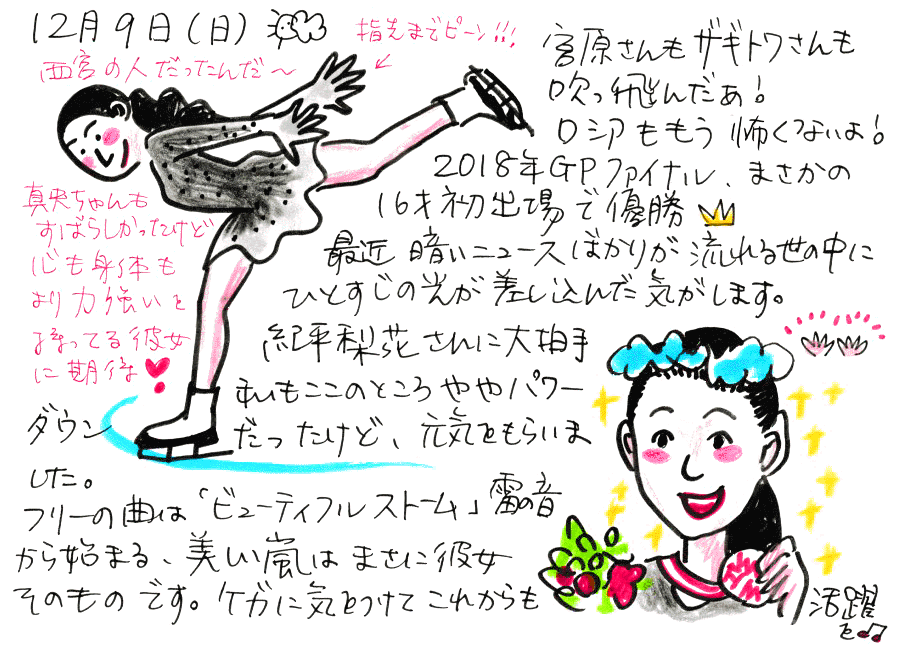 12月9日(日)
指先までピーン!!!
西宮の人だったんだ～
宮原さんもザギトワさんも
吹っ飛んだあ!
ロシアももう怖くないよ!
2018年GPファイナル、まさかの
16才初出場で優勝
最近暗いニュースばかりが流れる世の中に
ひとすじの光が差し込んだ気がします。
紀平梨花さんに大拍手
私もここのところややパワー
ダウンだったけど、元気をもらいま
した。
フリーの曲は「ビューティフルストーム」雷の音
から始まる、美しい嵐はまさに彼女
そのものです。ケガに気をつけてこれからも
活躍
を♫
真央ちゃんも
すばらしかったけど
心も身体も
より力強いと
語ってる彼女
に期待